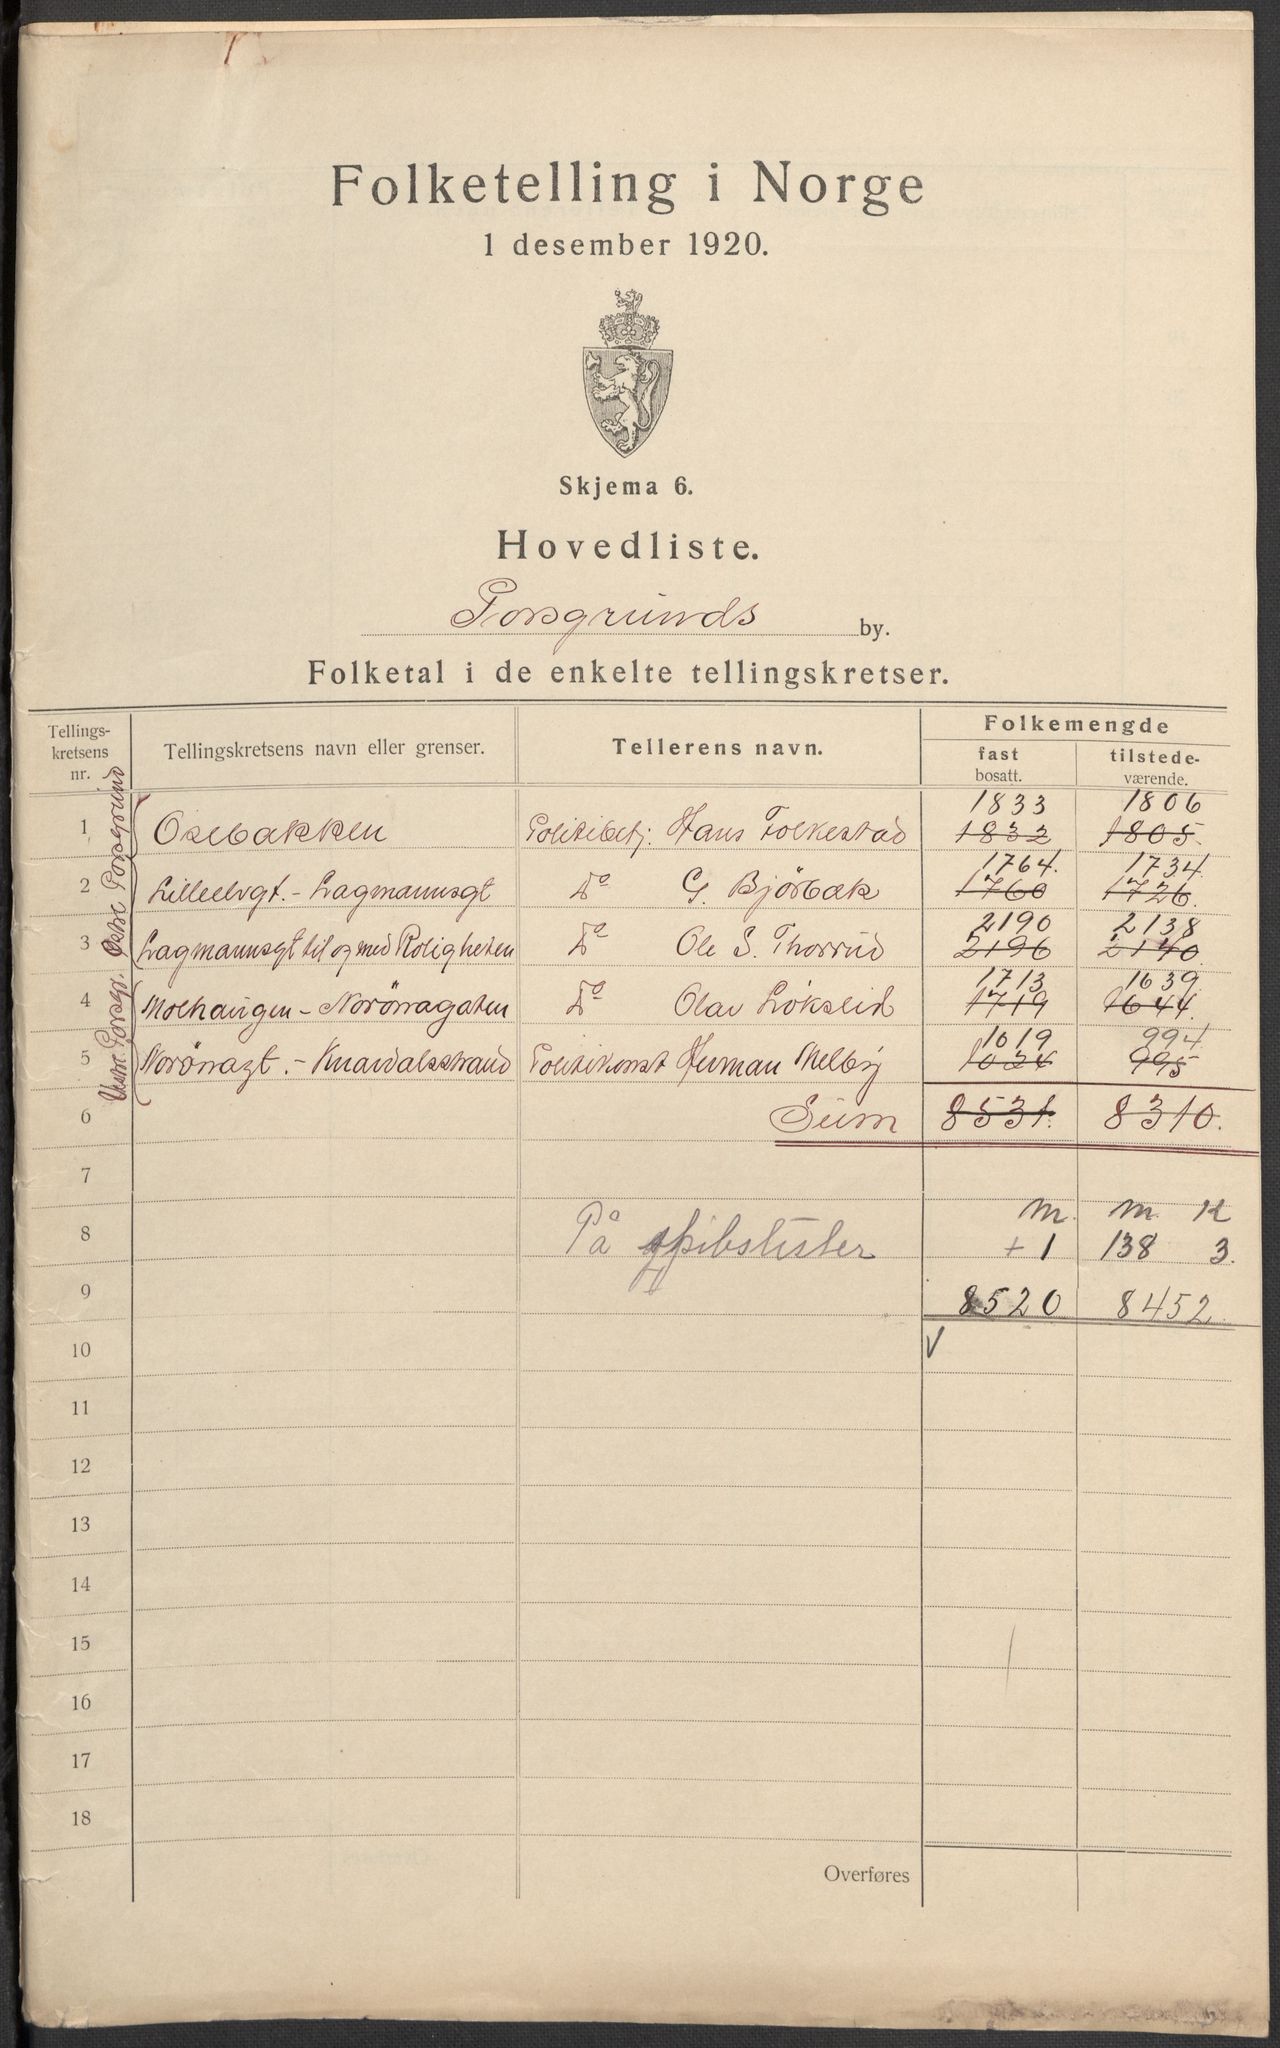 Folketelling i Norge
1 desember 1920.
Skjema 6.
Hovedliste.
Porsgrunds by.
Folketal i de enkelte tellingskretser.
Tellings-
kretsens
nr.
Tellingskretsens navn eller grenser.
Tellerens navn.
Folkemengde
fast
bosatt.
tilstede-
værende.
Østre Porsgrund
Vestre Porsgr.
1833 1806
1 Osebakken Politibetj. Hans Folkestad 1832 1805.
1764. 1734.
2 Lilleelvgt. - Lagmannsgt Do G. Björbæk 1760 1726.
2190 2138
3 Lagmannsgt til og med Roligheten Do Ole S. Thorrud 2196 2140.
1713 1639.
4 Molhaugen - Norönagaten Do Olav Lökslid 1719 1644.
1019 994.
5 Norönagt. - Knardalsstrand Politikonst Herman Melby 1024 995
6 Sum 8531. 8310.
7
M. M. K
8 På skibslister + 1 138 3.
9 8520 8452
10 V
11
12
13
14
15
16
17
18
Overføres